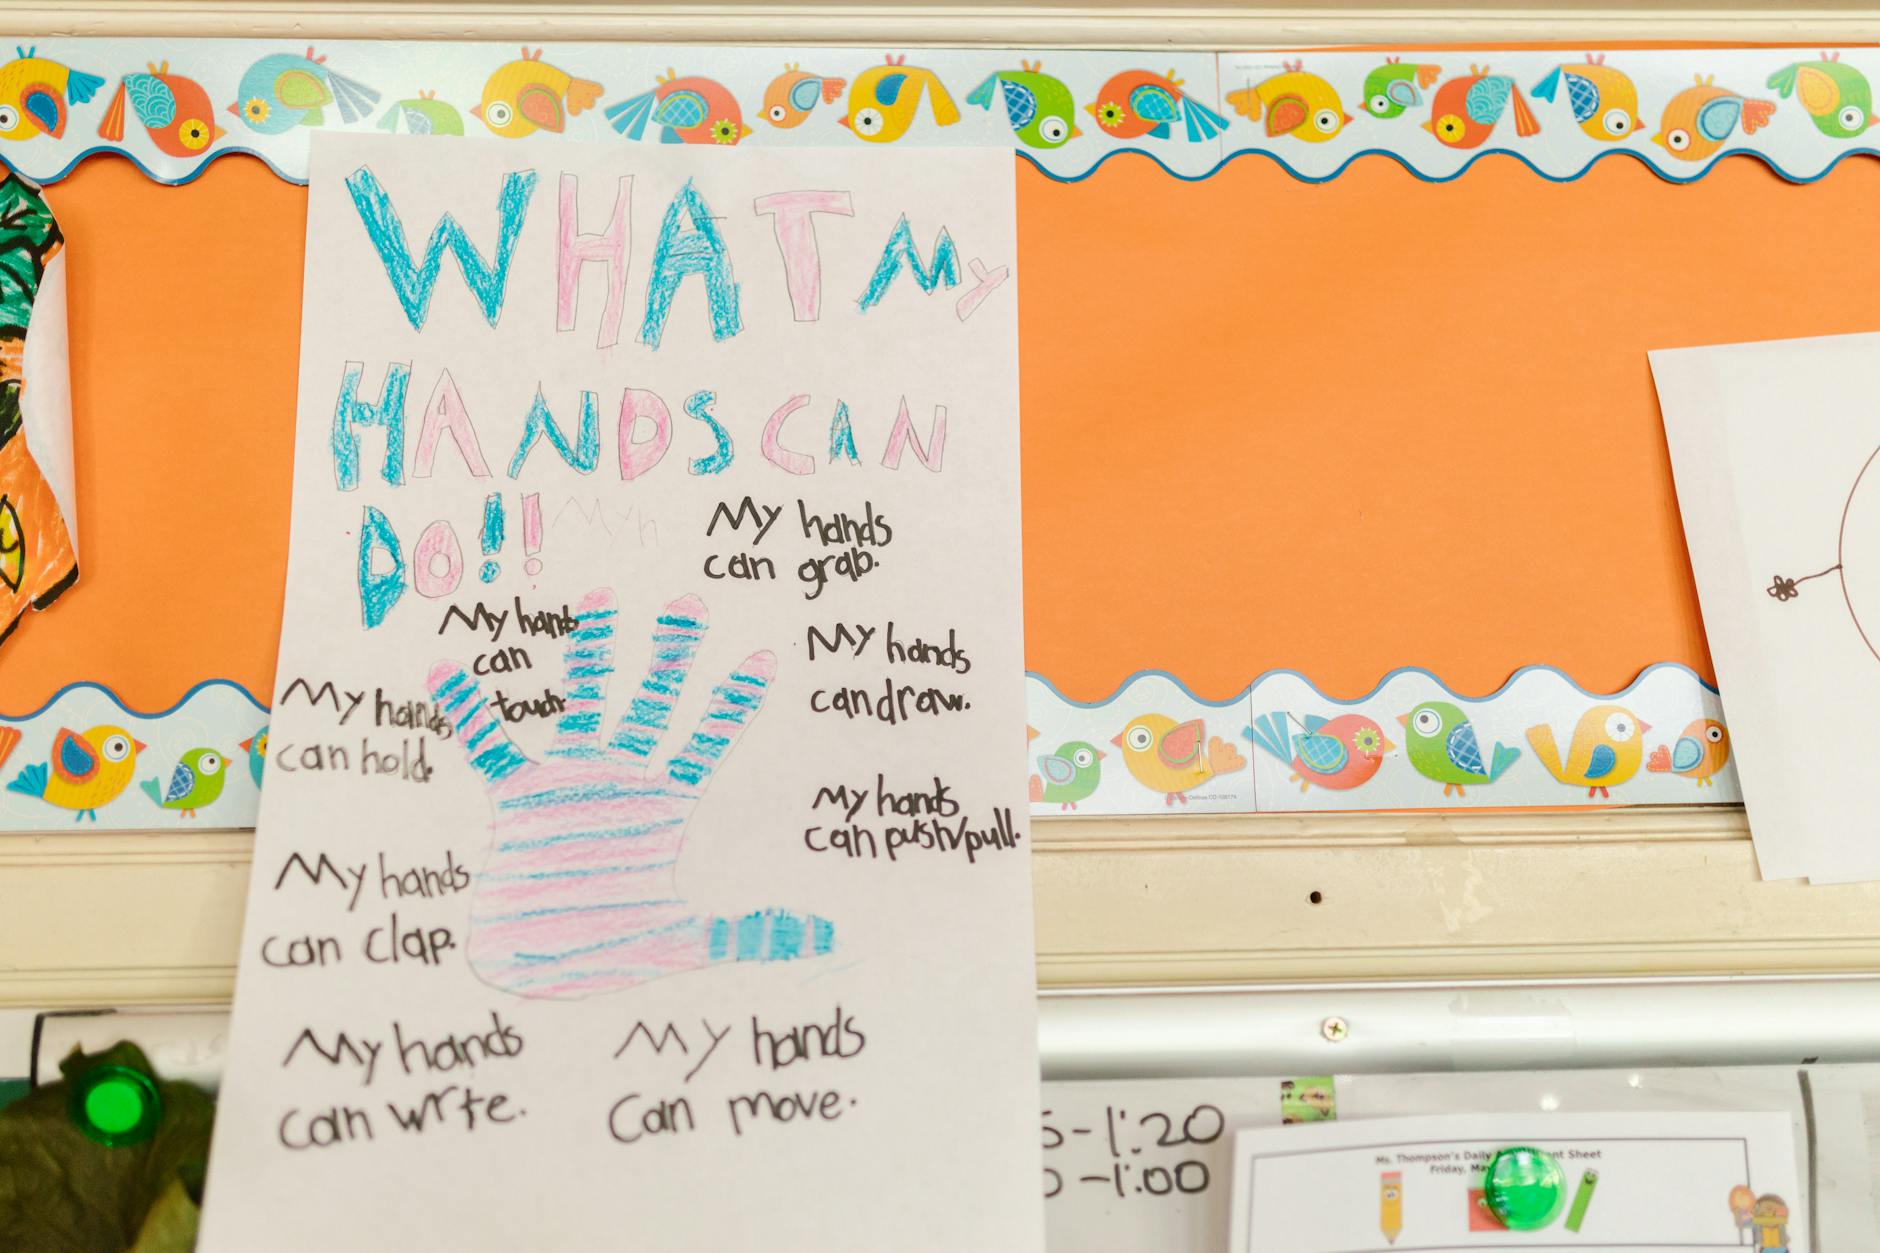 WHAT My
HANDS CAN
DO!!
Myh
My hands
can grab.
My hands
can
touch
My hands
can draw.
My hands
can hold.
My hands
can push/pull.
My hands
can clap.
My hands
can wrte.
My hands
Can move.
-1:20
-1:00
Ms. Thompson's Daily Sheet
Friday, May